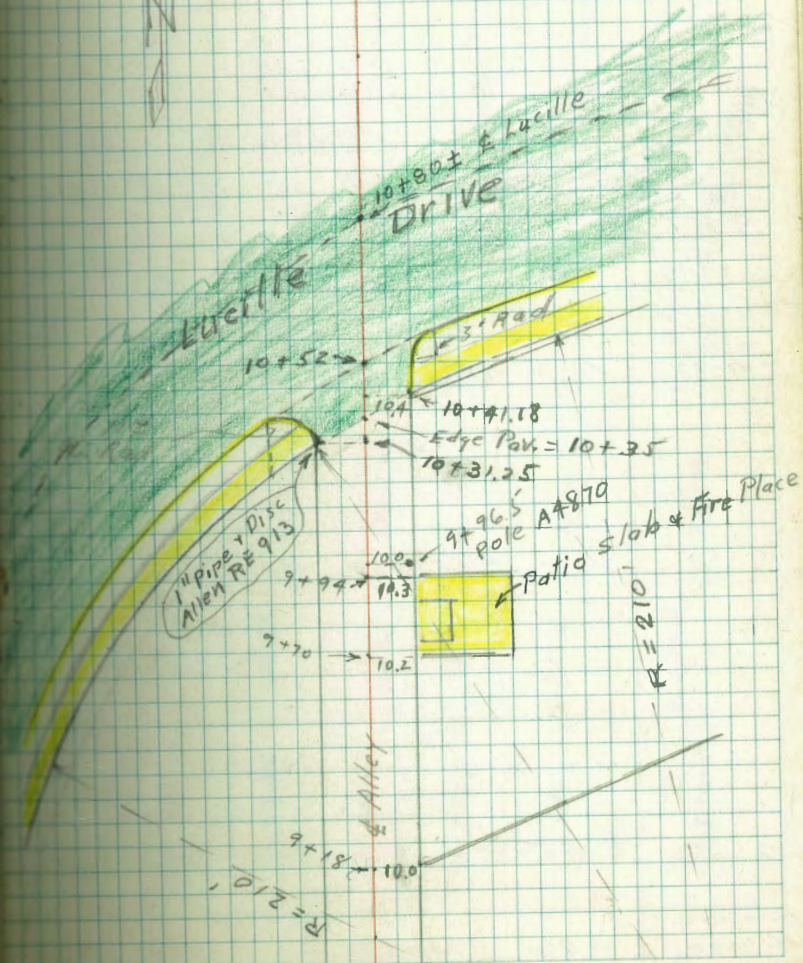 N
10+80± ₵ Lucille
Lucille Drive
3' Rad
10+52
10.4
10+41.18
Edge Pav. = 10+35
10+31.25
1" pipe + Disc
Allen RE 913
9+96.5
pole A4870
10.0
Patio Slab & Fire Place
9+94
10.3
9+70
10.2
R=210'
₵ Alley
9+18
10.0
R=210'